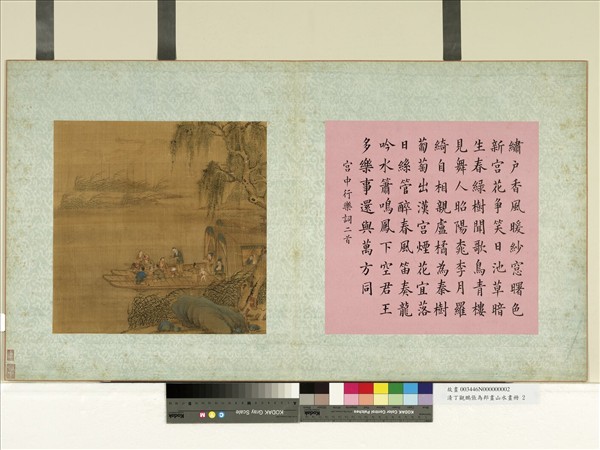 繡戶香風暖紗窓曙色
新宮花爭笑日池草暗
生春綠樹聞歌鳥青樓
見舞人昭陽桃李月羅
綺自相親盧橘為秦樹
葡萄出漢宮煙花宜落
日絲管醉春風笛奏龍
吟水簫鳴鳳下空君王
多樂事還與萬方同
宮中行樂詞二首
KODAK Gray Scale
KODAK Color Control Patches
故畫 003446N000000002
清丁觀鵬張為邦畫山水 2